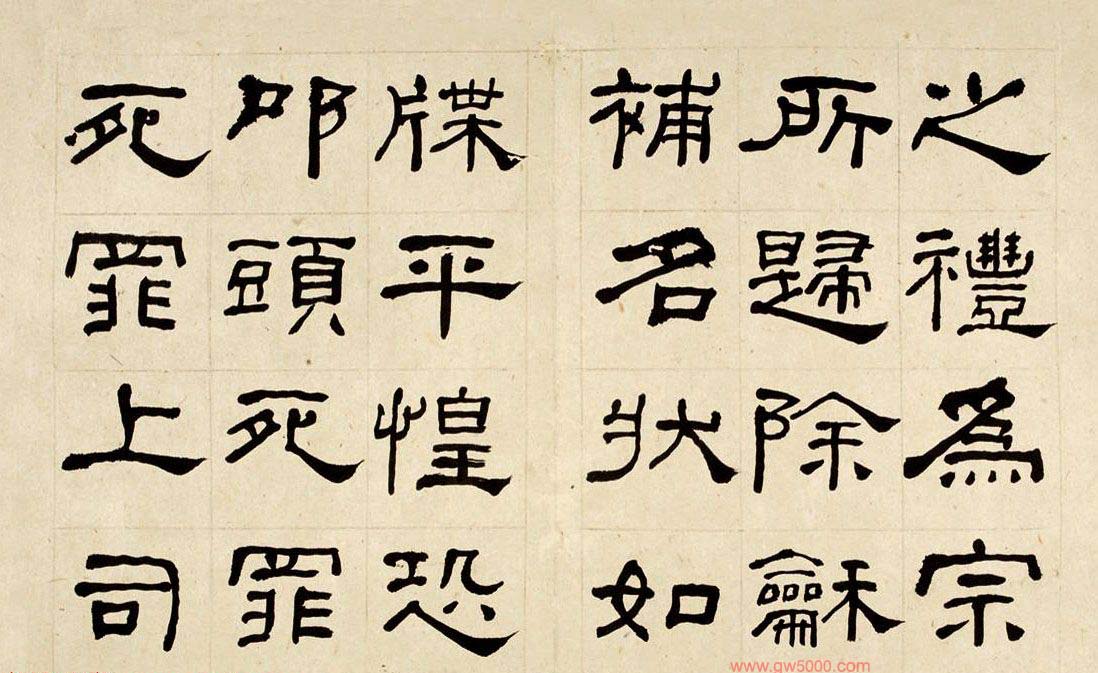 之禮為宗
所歸除龢
補名狀如
牒平惶恐
叩頭死罪
死罪上司
www.gw5000.com